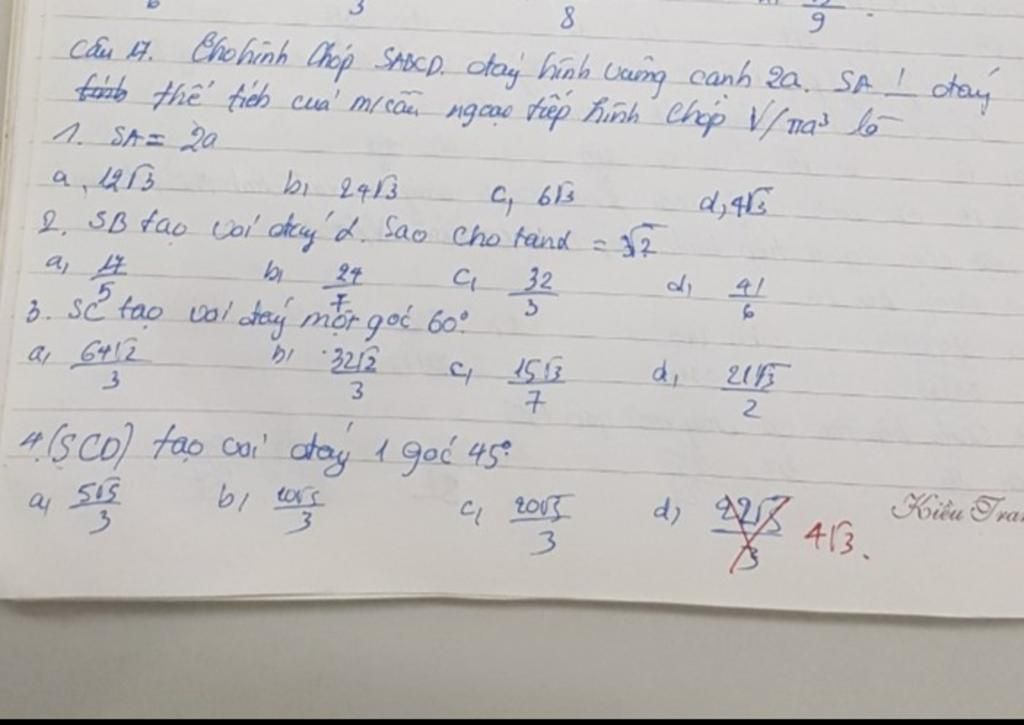 6 3 8 9
Câu 17. Cho hình chóp SABCD. đáy hình vuông cạnh 2a. SA ⊥ đáy
thể tích của m/cầu ngoại tiếp hình chóp V/πa³ là
1. SA = 2a
a, 12√3 b, 24√3 c, 6√3 d, 4√3
2. SB tạo với đáy α. Sao cho tanα =
a, 17/5 b, 24/7 c, 32/3 d, 41/6
3. SC tạo với đáy một góc 60°
a, 64√2/3 b, 32√2/3 c, 15√3/7 d, 21√3/2
4. (SCD) tạo với đáy 1 góc 45°
a, 5√5/3 b, 10√5/3 c, 20√5/3 d, 4√3.
Kiều Tran